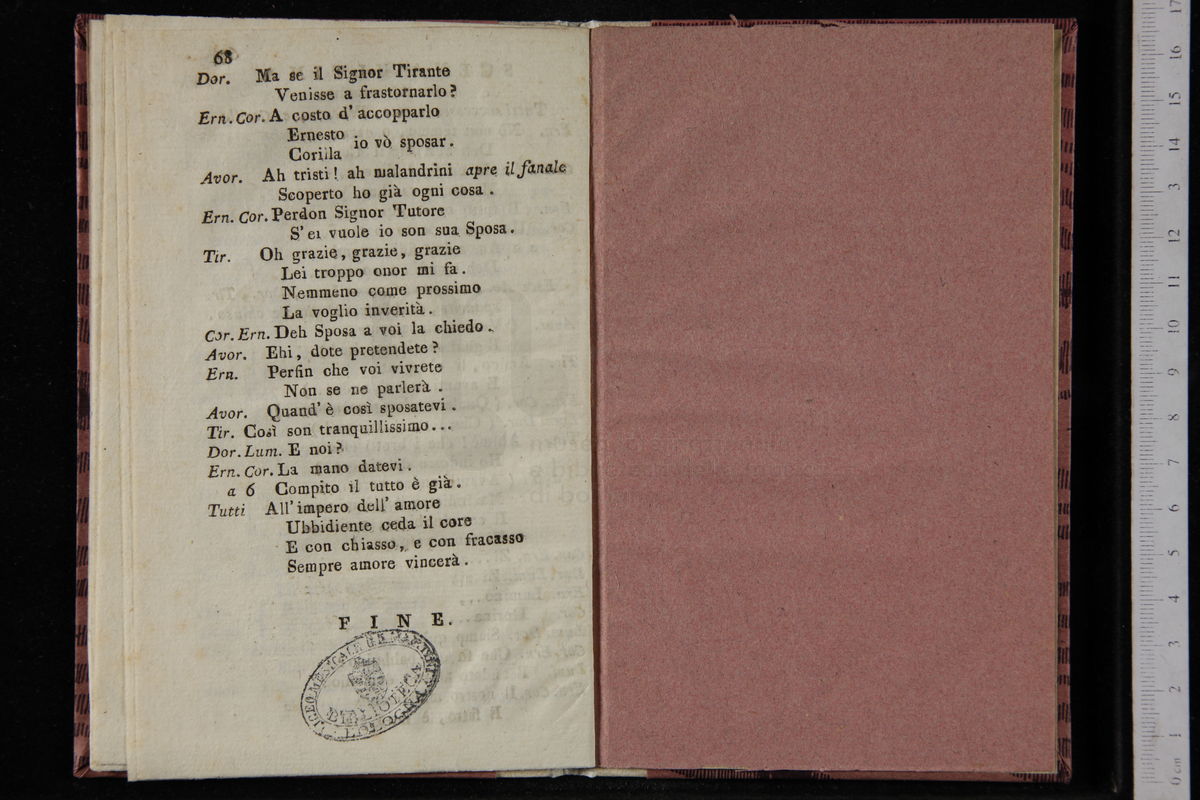 68
Dor. Ma se il Signor Tirante
Venisse a frastornarlo?
Ern. Cor. A costo d' accopparlo
Ernesto
io vò sposar.
Corilla
Avor. Ah tristi! ah malandrini apre il fanale
Scoperto ho già ogni cosa.
Ern. Cor. Perdon Signor Tutore
S' ei vuole io son sua Sposa.
Tir. Oh grazie, grazie, grazie
Lei troppo onor mi fa.
Nemmeno come prossimo
La voglio inverità.
Cor. Ern. Deh Sposa a voi la chiedo.
Avor. Ehi, dote pretendete?
Ern. Perfin che voi vivrete
Non se ne parlerà.
Avor. Quand' è così sposatevi.
Tir. Così son tranquillissimo...
Dor. Lum. E noi?
Ern. Cor. La mano datevi.
a 6 Compito il tutto è già.
Tutti All' impero dell' amore
Ubbidiente ceda il core
E con chiasso, e con fracasso
Sempre amore vincerà.
FINE.
LICEO MUSICALE
BIBLIOTECA
BOLOGNA
0 cm 1 2 3 4 5 6 7 8 9 10 11 12 13 14 15 16 17